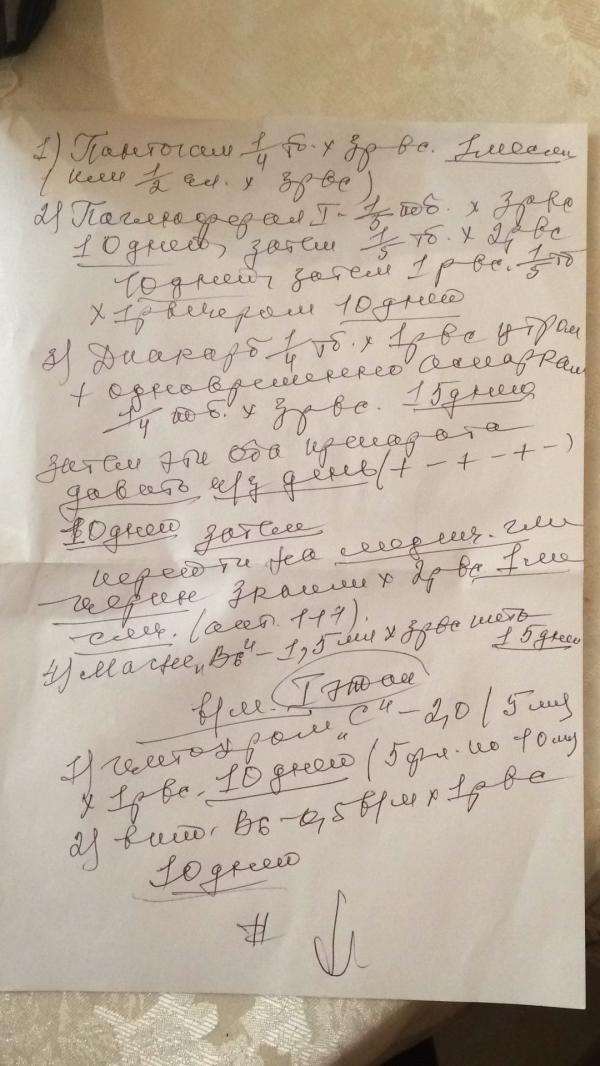 1) Пантогам 1/4 тб. x 3р вс. 1 месяц
(или 1/2 ч.л. x 3р вс)
2) Паглюферал I - 1/5 тб. x 3р вс
10 дней, затем 1/5 тб. x 2р вс
10 дней, затем 1 р вс. 1/5 тб
x 1р вечером 10 дней
3) Диакарб 1/4 тб. x 1р вс утром
+ одновременно аспаркам
1/4 таб. x 3р вс. 15 дней
затем эти оба препарата
давать ч/з день (+ - + - + -)
10 дней затем
перейти на медиц. гли
церин 3 капли x 2р вс 1 ме
сяц. (1+1).
4) Магне „B6" - 1,5 мл x 3р вс пить
15 дней
в/м. I этап
1) цитохром „С" - 2,0 / 5 мг
x 1р вс. 10 дней (5 фл. по 10 мг
2) вит. B6 - 0,5 в/м x 1р вс
10 дней
#